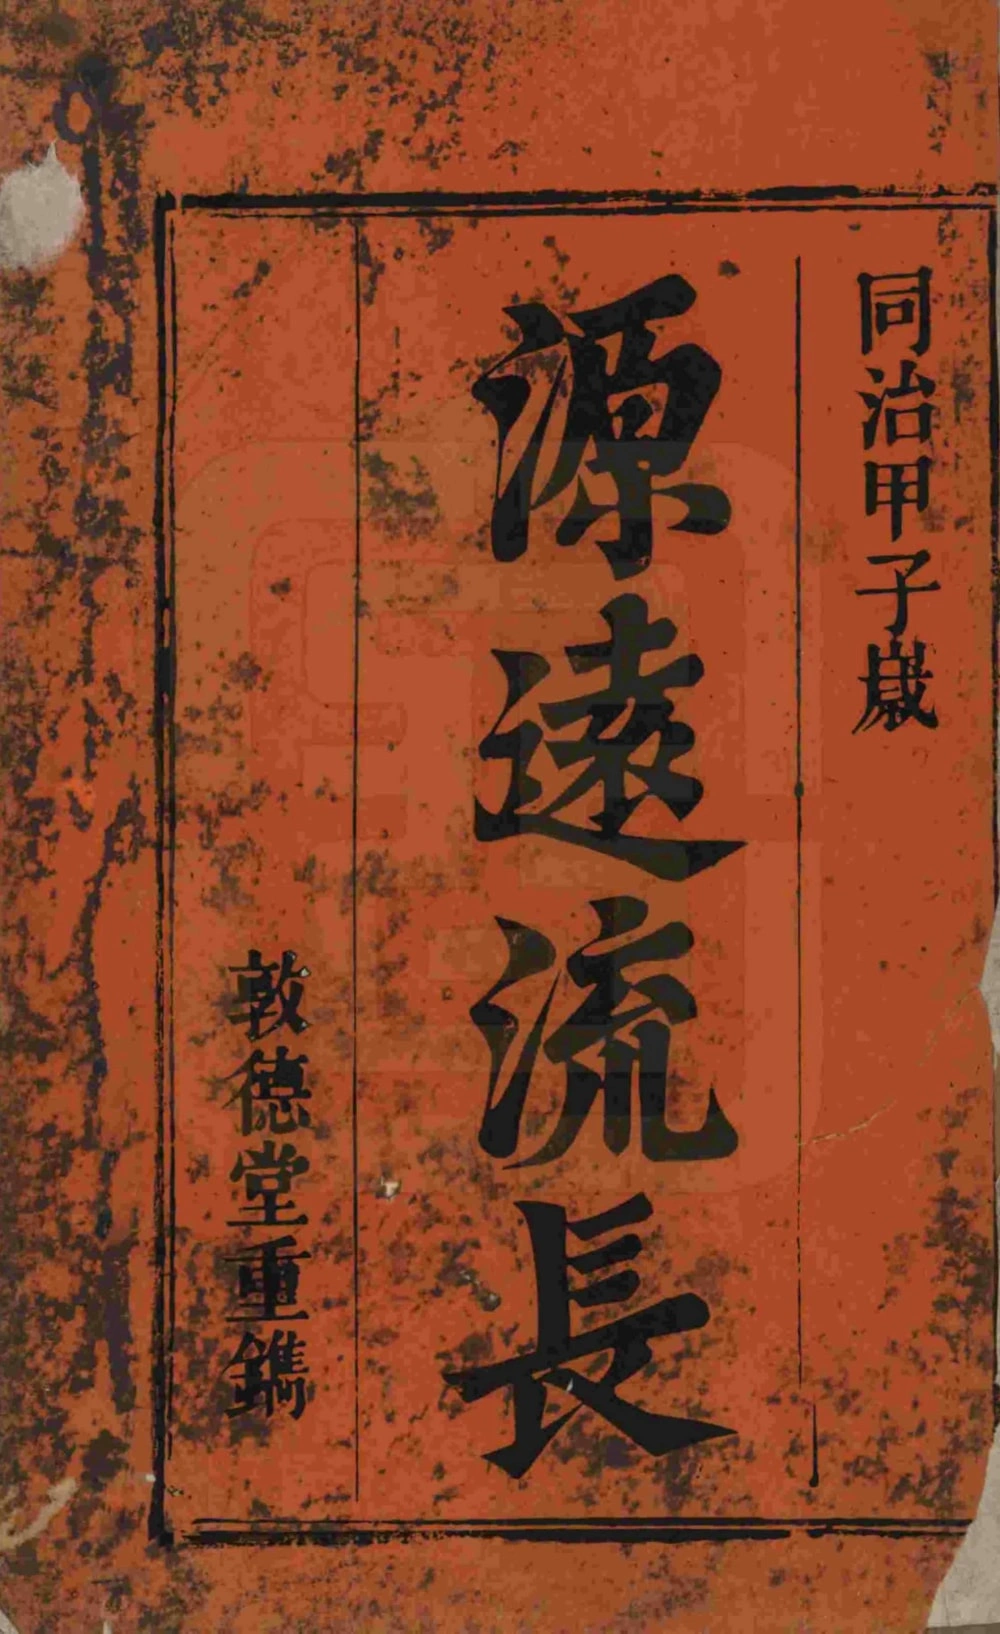 同治甲子歲
源遠流長
敦德堂重鐫